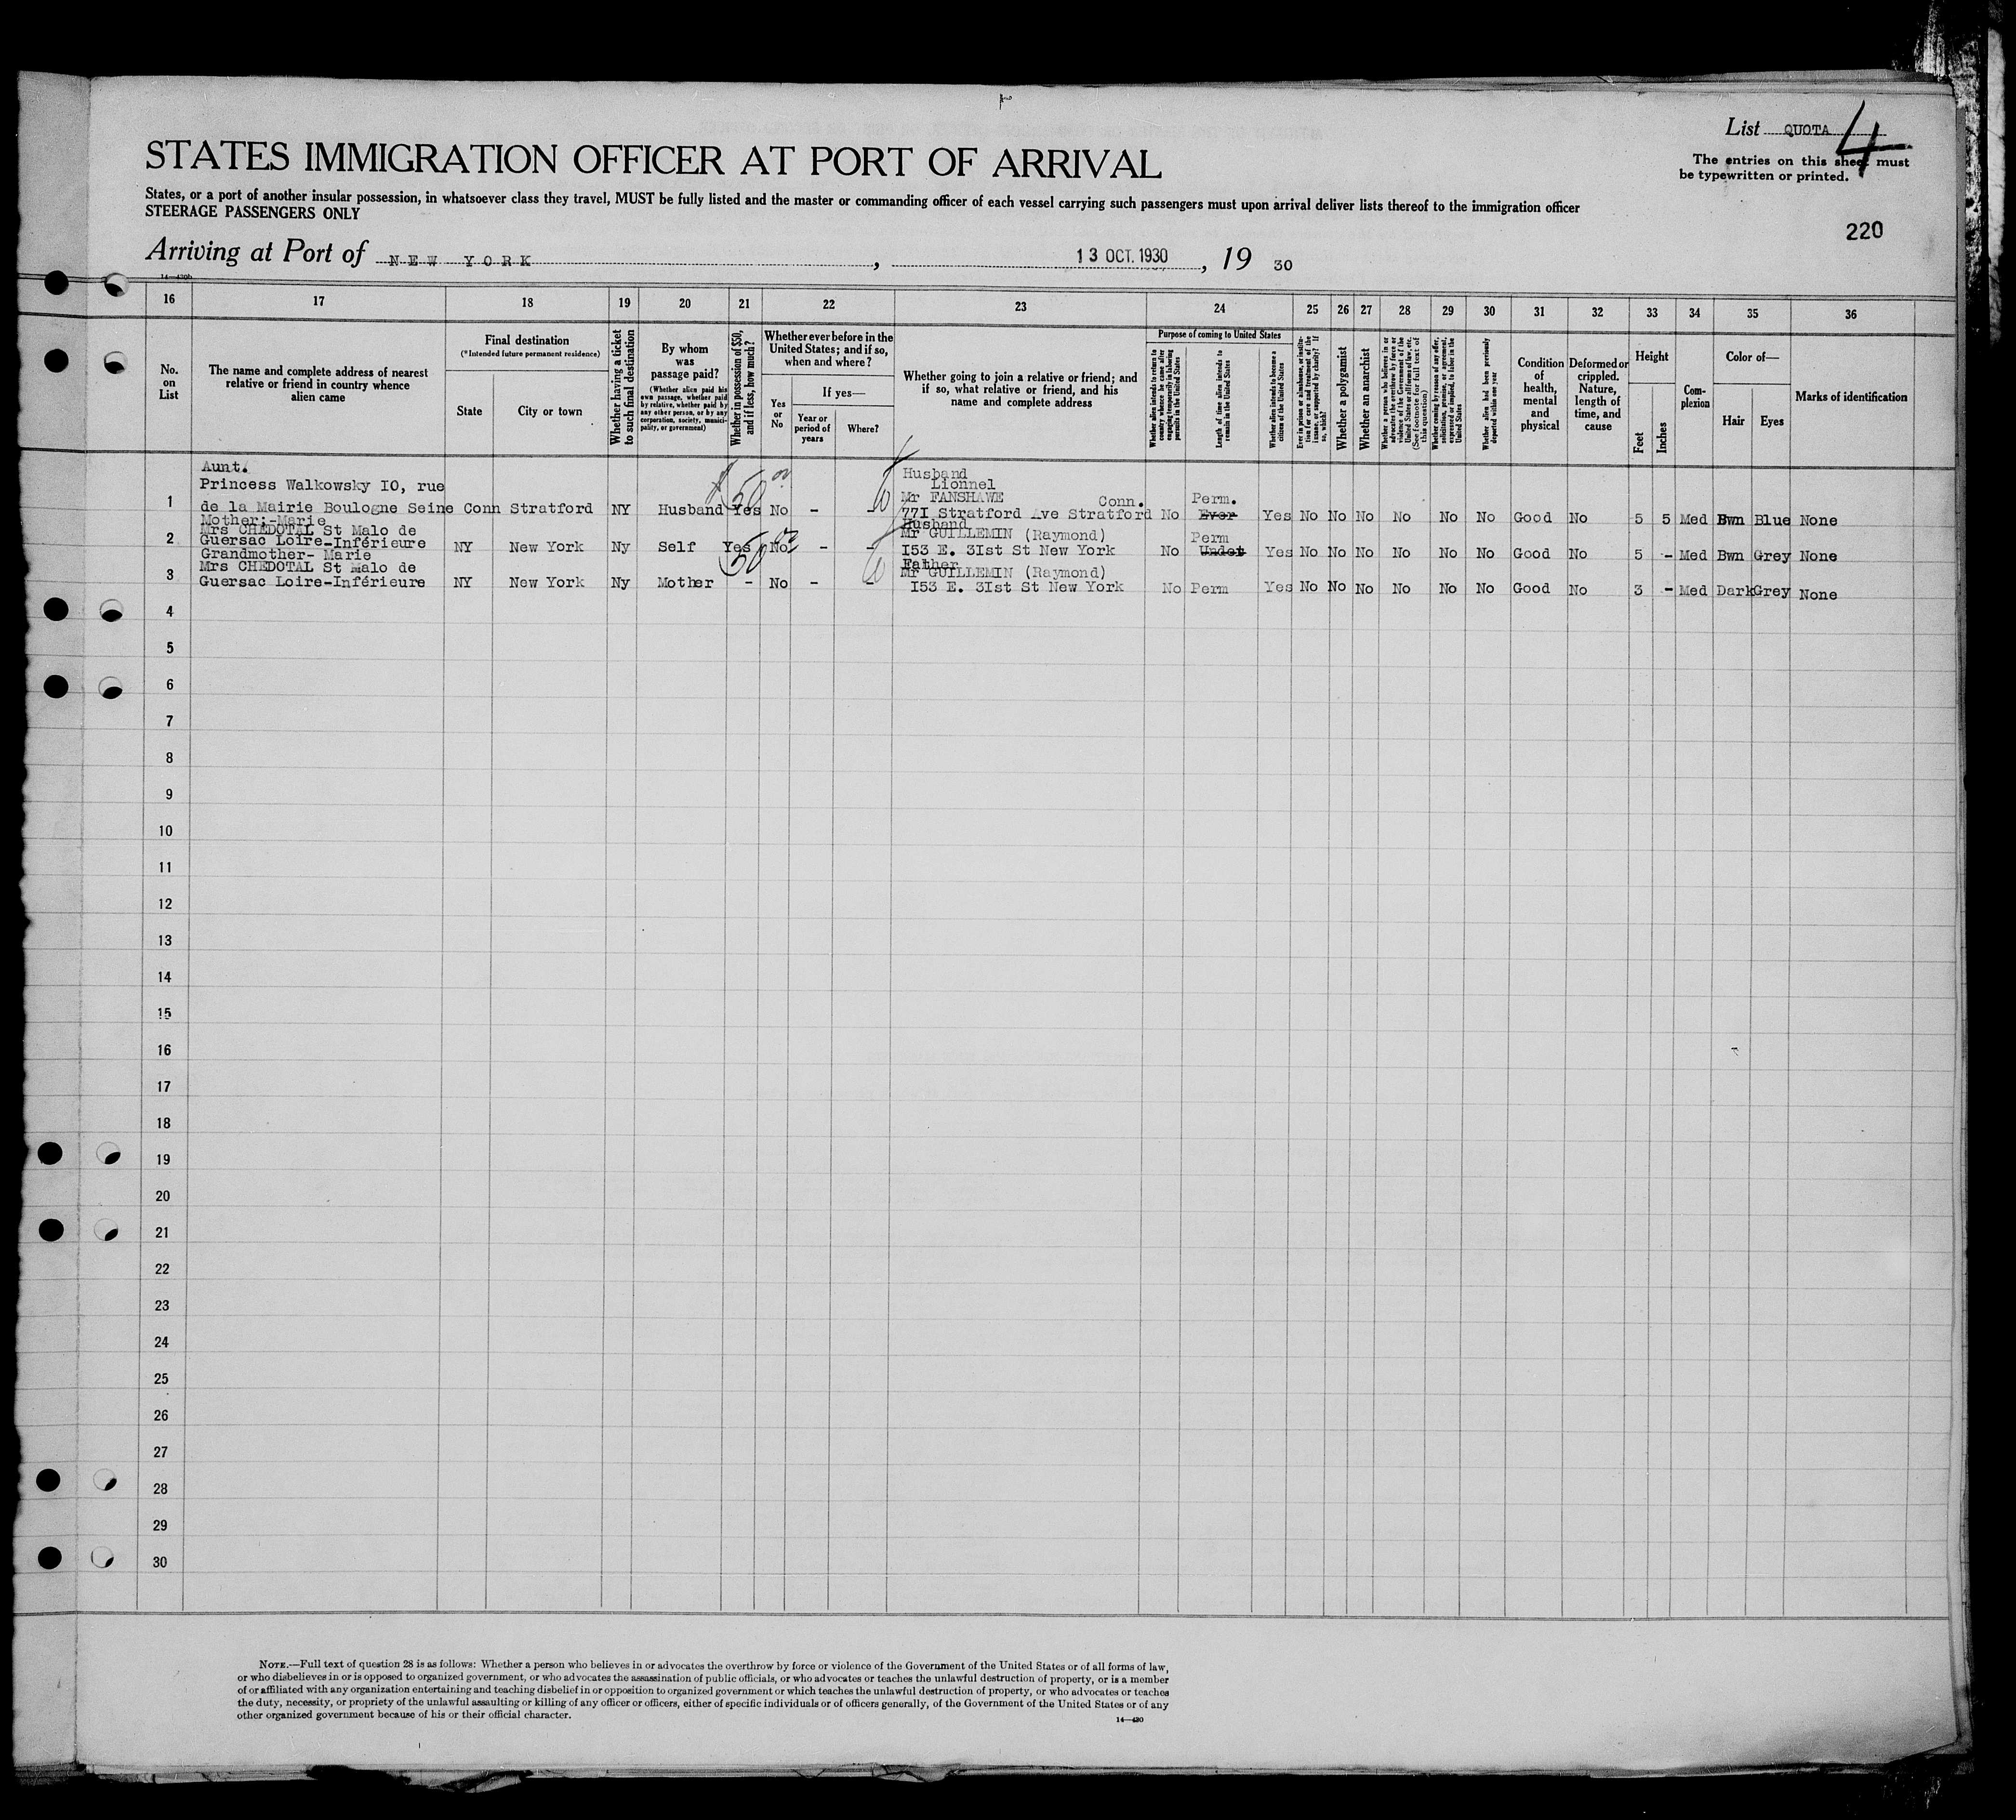 List QUOTA 4
The entries on this sheet must
be typewritten or printed.
STATES IMMIGRATION OFFICER AT PORT OF ARRIVAL
States, or a port of another insular possession, in whatsoever class they travel, MUST be fully listed and the master or commanding officer of each vessel carrying such passengers must upon arrival deliver lists thereof to the immigration officer
STEERAGE PASSENGERS ONLY
220
Arriving at Port of NEW YORK, 13 OCT. 1930, 19 30
14-430b
16 17 18 19 20 21 22 23 24 25 26 27 28 29 30 31 32 33 34 35 36
No. on List
The name and complete address of nearest relative or friend in country whence alien came
Final destination
(*Intended future permanent residence)
State
City or town
Whether having a ticket to such final destination
By whom was passage paid?
(Whether alien paid his own passage, whether paid by relative, whether paid by any other person, or by any corporation, society, municipality, or government)
Whether in possession of $50, and if less, how much?
Whether ever before in the United States; and if so, when and where?
Yes or No
If yes—
Year or period of years
Where?
Whether going to join a relative or friend; and if so, what relative or friend, and his name and complete address
Purpose of coming to United States
Whether alien intends to return to country whence he came after engaging temporarily in laboring pursuits in the United States
Length of time alien intends to remain in the United States
Whether alien intends to become a citizen of the United States
Ever in prison or almshouse, or institution for care and treatment of the insane, or supported by charity? If so, which?
Whether a polygamist
Whether an anarchist
Whether a person who believes in or advocates the overthrow by force or violence of the Government of the United States or all forms of law, etc. (See footnote for full text of this question)
Whether coming by reason of any offer, solicitation, promise, or agreement, expressed or implied, to labor in the United States
Whether alien had been previously deported within one year
Condition of health, mental and physical
Deformed or crippled. Nature, length of time, and cause
Height
Feet
Inches
Complexion
Color of—
Hair
Eyes
Marks of identification
Aunt.
Princess Walkowsky IO, rue
1 de la Mairie Boulogne Seine Conn Stratford NY Husband Yes $50.00 No - -
Husband
Lionnel
Mr FANSHAWE Conn.
77I Stratford Ave Stratford No Perm. Ever Yes No No No No No No Good No 5 5 Med Bwn Blue None
Mother:-Marie
Mrs CHEDOTAL St Malo de
2 Guersac Loire-Inférieure NY New York Ny Self Yes 50 No - -
Husband
Mr GUILLEMIN (Raymond)
I53 E. 3Ist St New York No Perm Undet Yes No No No No No No Good No 5 - Med Bwn Grey None
Grandmother- Marie
Mrs CHEDOTAL St Malo de
3 Guersac Loire-Inférieure NY New York Ny Mother - No - -
Father
Mr GUILLEMIN (Raymond)
I53 E. 3Ist St New York No Perm Yes No No No No No No Good No 3 - Med Dark Grey None
4
5
6
7
8
9
10
11
12
13
14
15
16
17
18
19
20
21
22
23
24
25
26
27
28
29
30
NOTE.—Full text of question 28 is as follows: Whether a person who believes in or advocates the overthrow by force or violence of the Government of the United States or of all forms of law,
or who disbelieves in or is opposed to organized government, or who advocates the assassination of public officials, or who advocates or teaches the unlawful destruction of property, or is a member
of or affiliated with any organization entertaining and teaching disbelief in or opposition to organized government or which teaches the unlawful destruction of property, or who advocates or teaches
the duty, necessity, or propriety of the unlawful assaulting or killing of any officer or officers, either of specific individuals or of officers generally, of the Government of the United States or of any
other organized government because of his or their official character.
14—430